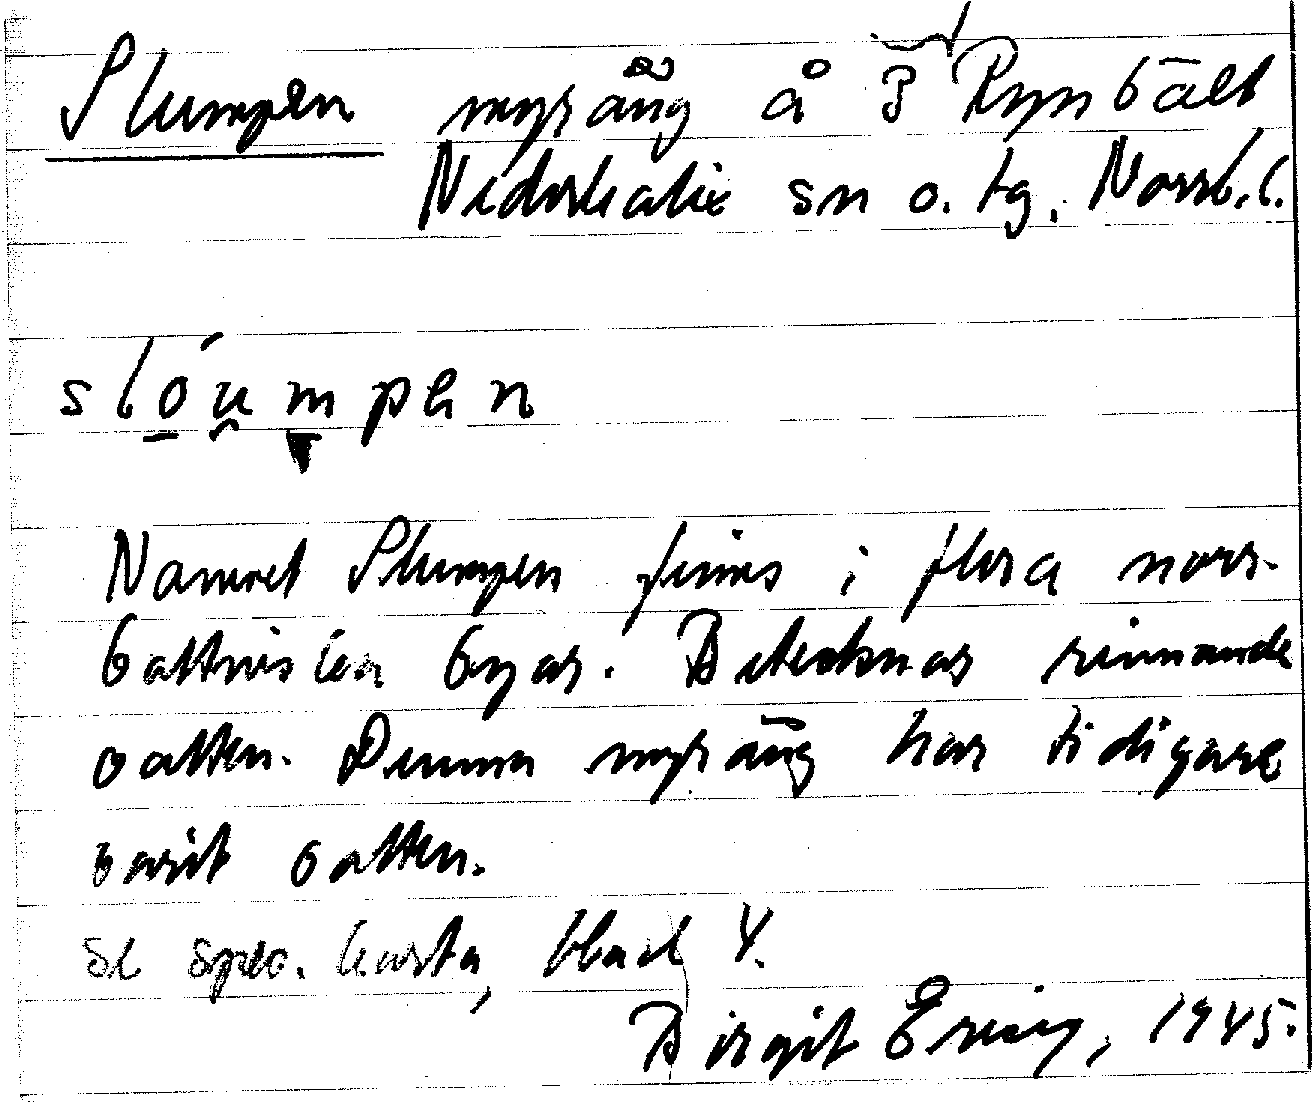 Slumpen myräng å Rymbält
Nederkalix sn o. tg. Norrb. l.
slóumpen
Namnet Slumpen finns i flera norr-
bottniska byar. Betecknar rinnande
vatten. Denna myräng har tidigare
varit vatten.
Se spec. karta, blad 4.
Birgit Ering, 1945.